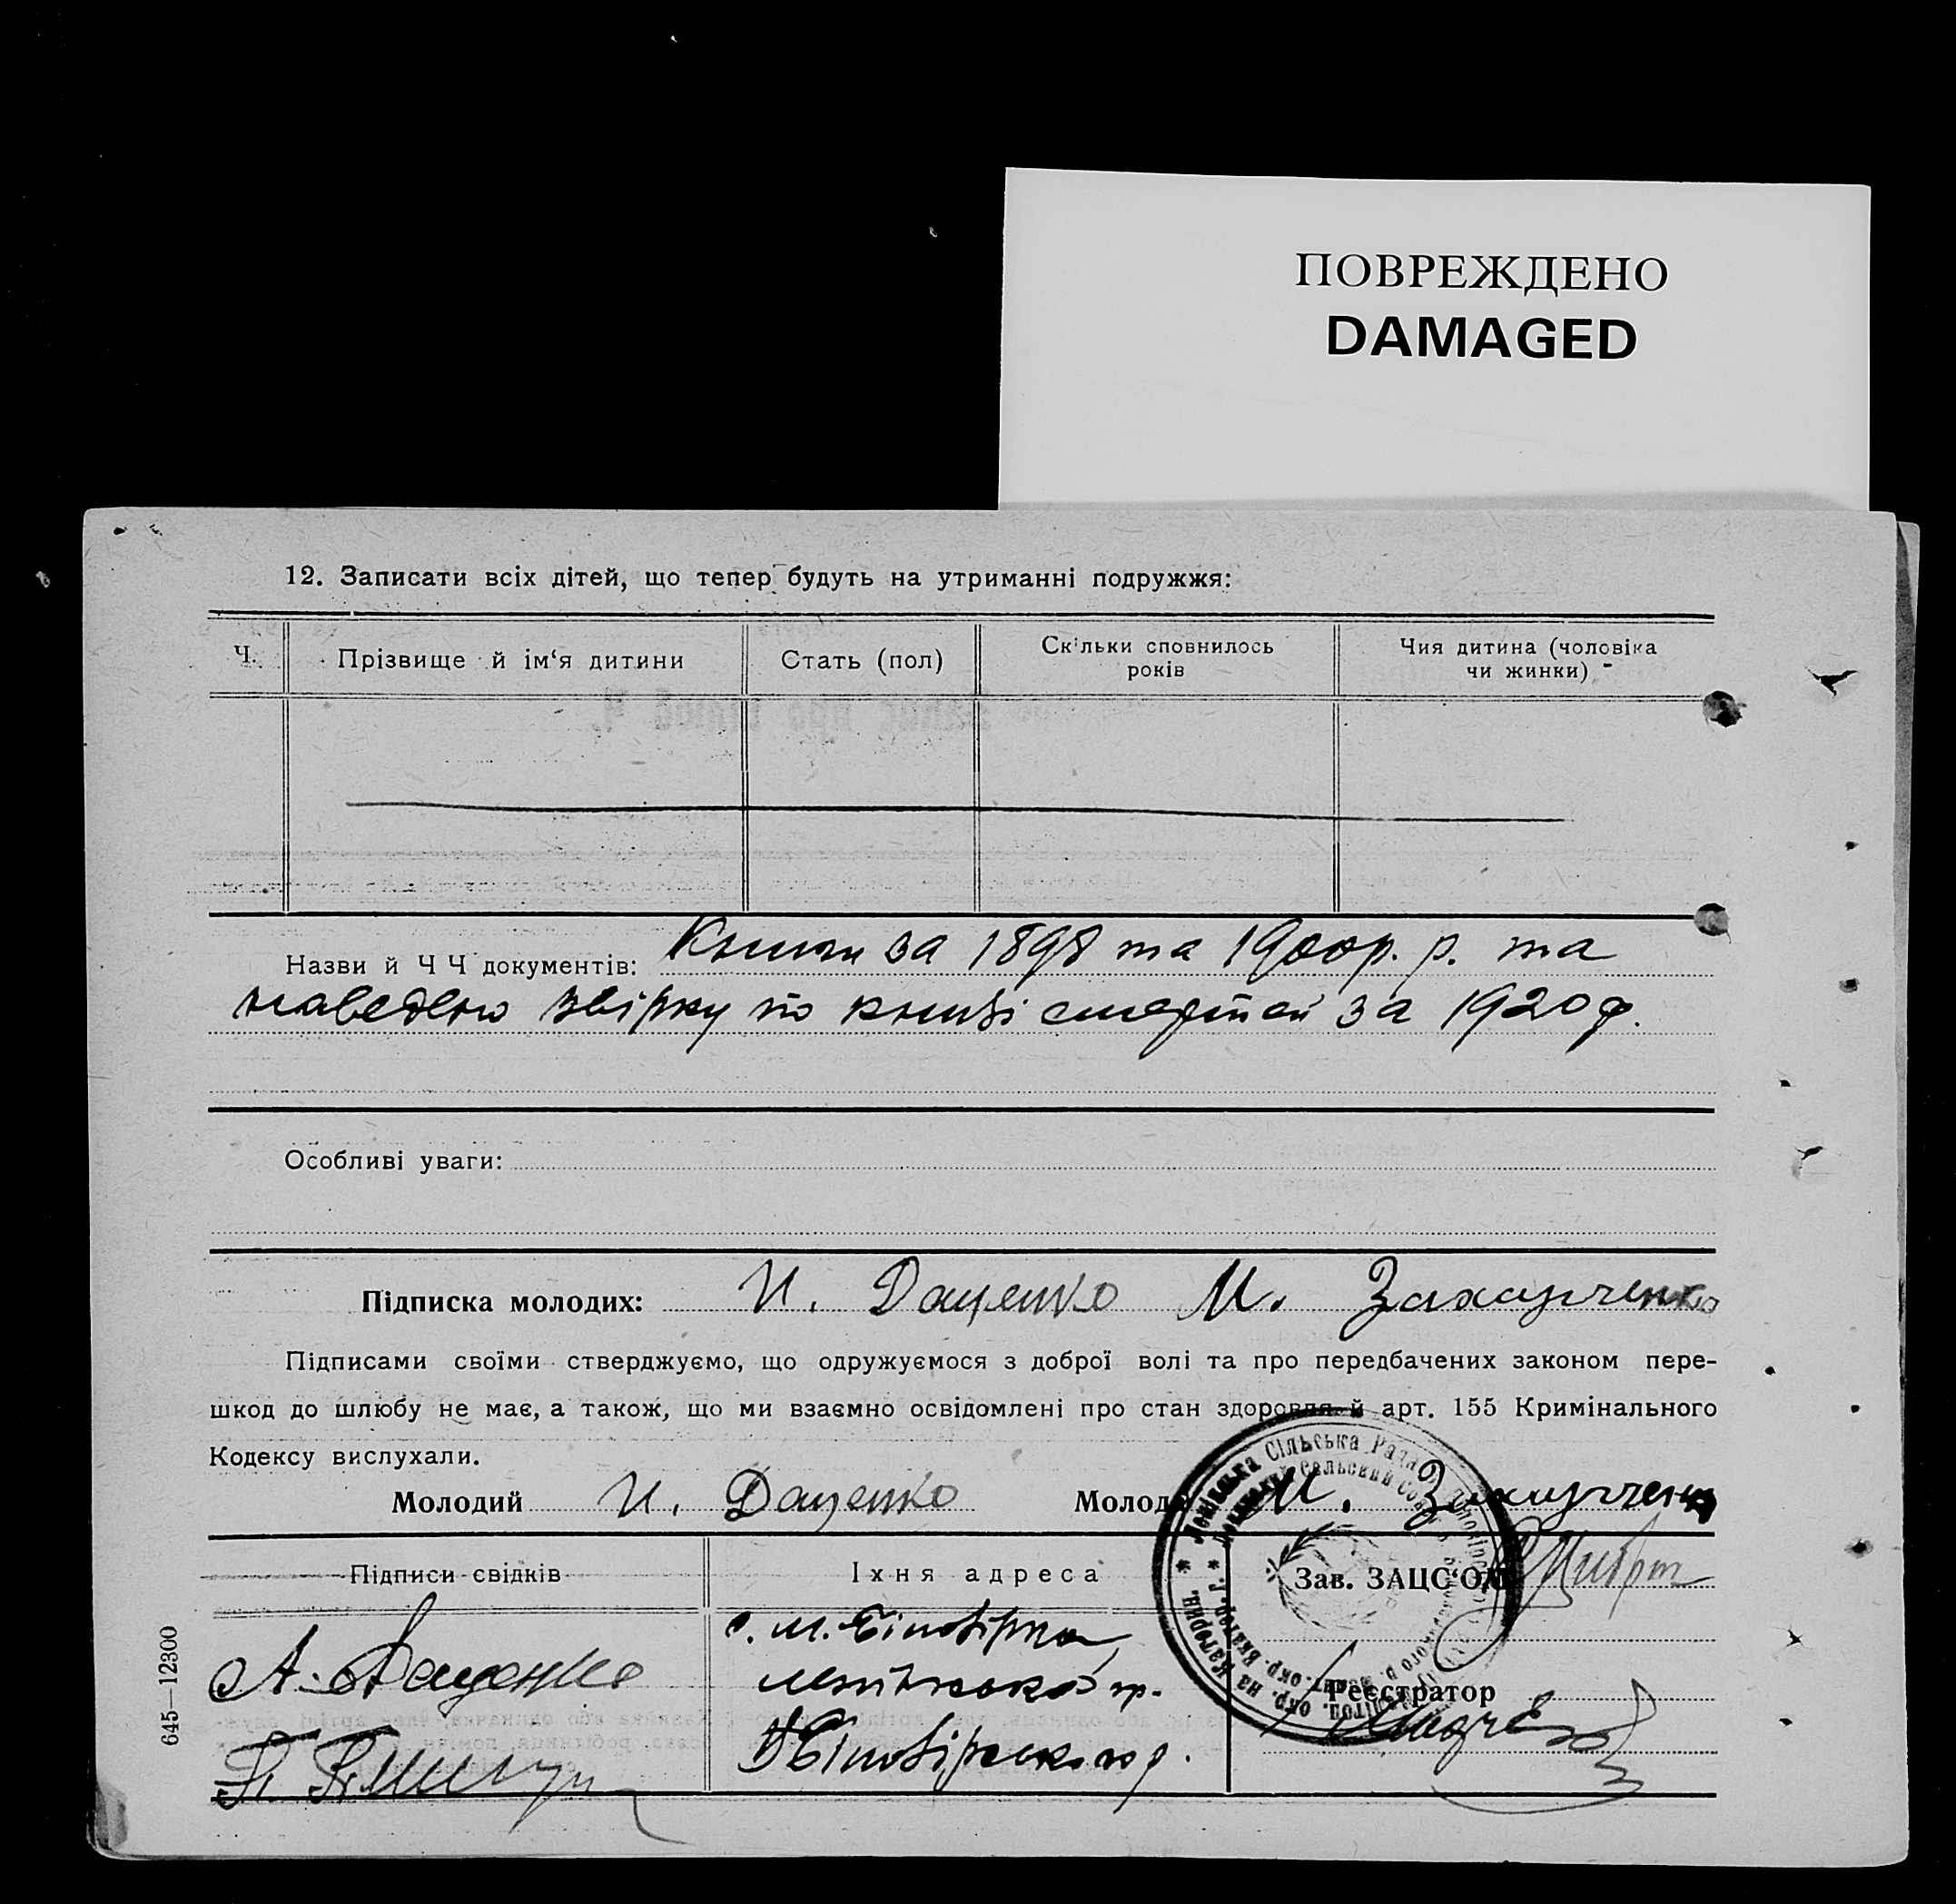 ПОВРЕЖДЕНО
DAMAGED
12. Записати всіх дітей, що тепер будуть на утриманні подружжя:
Ч.
Прізвище й ім‘я дитини
Стать (пол)
Скільки сповнилось
років
Чия дитина (чоловіка
чи жинки)
Назви й Ч Ч документів: Книги за 1898 та 1900р. р. та
наведено звірку по книзі смертей за 1920 р.
Особливі уваги:
Підписка молодих: И. Даценко М. Захарченко
Підписами своїми стверджуємо, що одружуємося з доброї волі та про передбачених законом пере-
шкод до шлюбу не має, а також, що ми взаємно освідомлені про стан здоровля й арт. 155 Кримінального
Кодексу вислухали.
Молодий И. Даценко Молода М. Захарченко
Підписи свідків
Їхня адреса
Зав. ЗАЦС‘ОМ
А. Даценко
с. М. Білозірка
Реєстратор
В Білозірського р.
Сільська Рада
Сельский Сов
645—12300